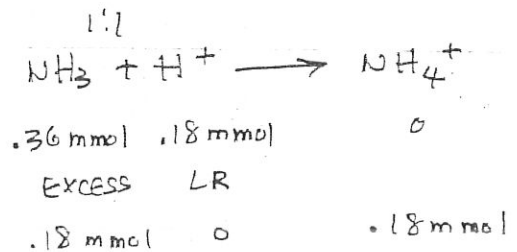 1:1
NH3 + H+ → NH4+
.36 mmol .18 mmol 0
EXCESS LR
.18 mmol 0 .18 mmol